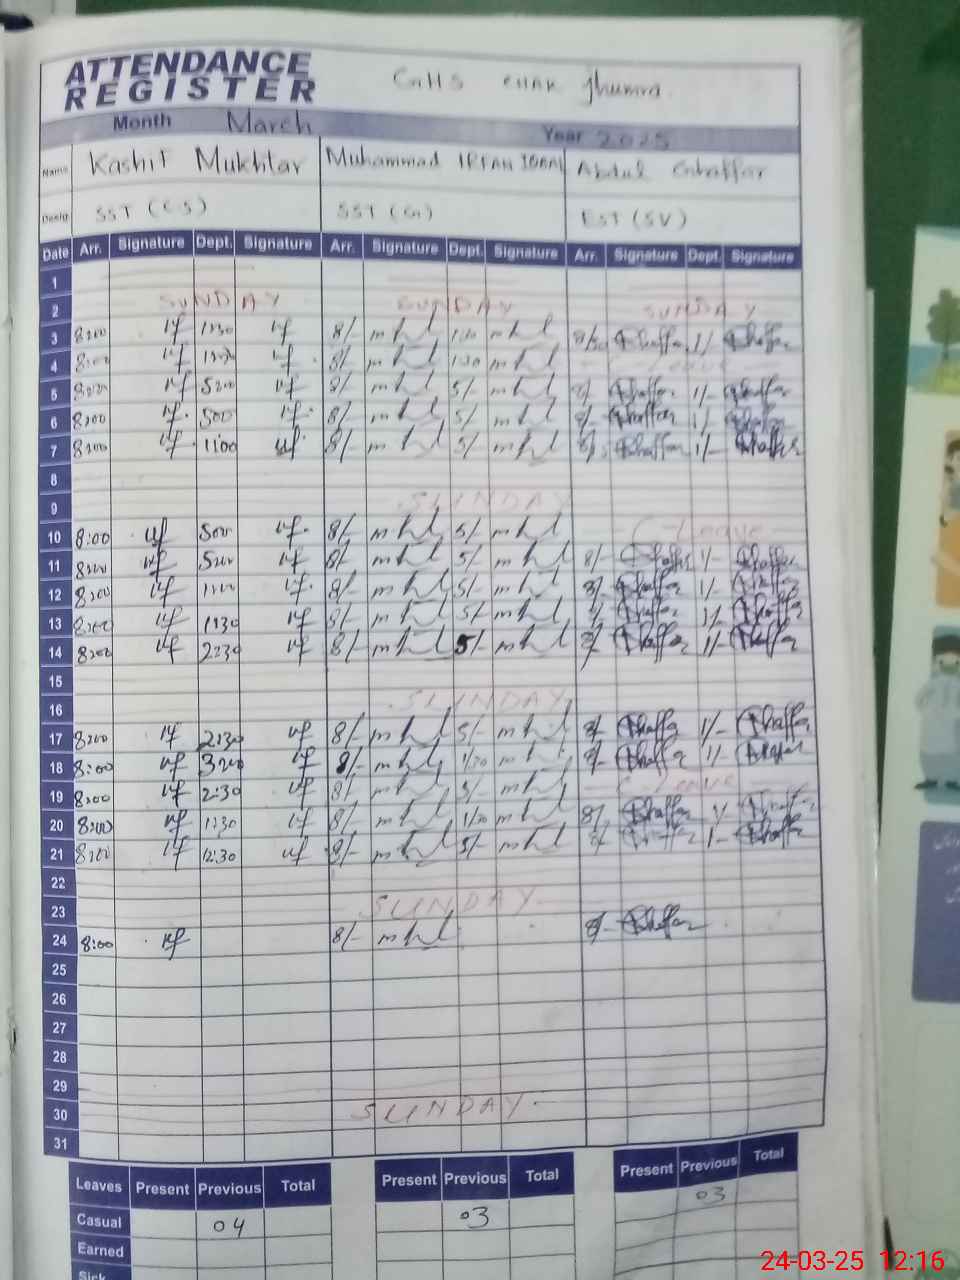 ATTENDANCE REGISTER GHS CHAK Jhumra
Month March Year 2025
Name Kashif Mukhtar Muhammad IRFAN IQBAL Abdul Ghaffar
Desig. SST (C.S) SST (G) EST (SV)
Date Arr. Signature Dept. Signature Arr. Signature Dept. Signature Arr. Signature Dept. Signature
1
2 SUNDAY SUNDAY SUNDAY
3 8:00 1:30 8/- 1:30 Ghaffar 1/- Ghaffar
4 8:00 8/- 1:30 Leave
5 8:00 5:00 8/- 5/- 8/- Ghaffar 1/- Ghaffar
6 8:00 5:00 8/- 5/- 8/- Ghaffar 1/- Ghaffar
7 8:00 11:00 8/- 5/- 8/- Ghaffar 1/- Ghaffar
8
9 SUNDAY
10 8:00 5:00 8/- 5/- C-Leave
11 8:00 5:00 8/- 5/- 8/- Ghaffar 1/- Ghaffar
12 8:00 8/- 5/- 8/- Ghaffar 1/- Ghaffar
13 8:00 1:30 8/- 5/- Ghaffar 1/- Ghaffar
14 8:00 2:30 8/- 5/- 8/- Ghaffar 1/- Ghaffar
15
16 SUNDAY
17 8:00 2:30 8/- 5/- 8/- Ghaffar 1/- Ghaffar
18 8:00 3:00 8/- 1/30 8/- Ghaffar 1/- Ghaffar
19 8:00 2:30 8/- 5/- C-Leave
20 8:00 1:30 8/- 1/30 8/- Ghaffar 1/- Ghaffar
21 8:00 12:30 8/- 5/- 8/- Ghaffar 1/- Ghaffar
22
23 SUNDAY
24 8:00 8/- 8/- Ghaffar
25
26
27
28
29
30 SUNDAY
31
Leaves Present Previous Total Present Previous Total Present Previous Total
Casual 04 03 03
Earned
Sick
24-03-25 12:16